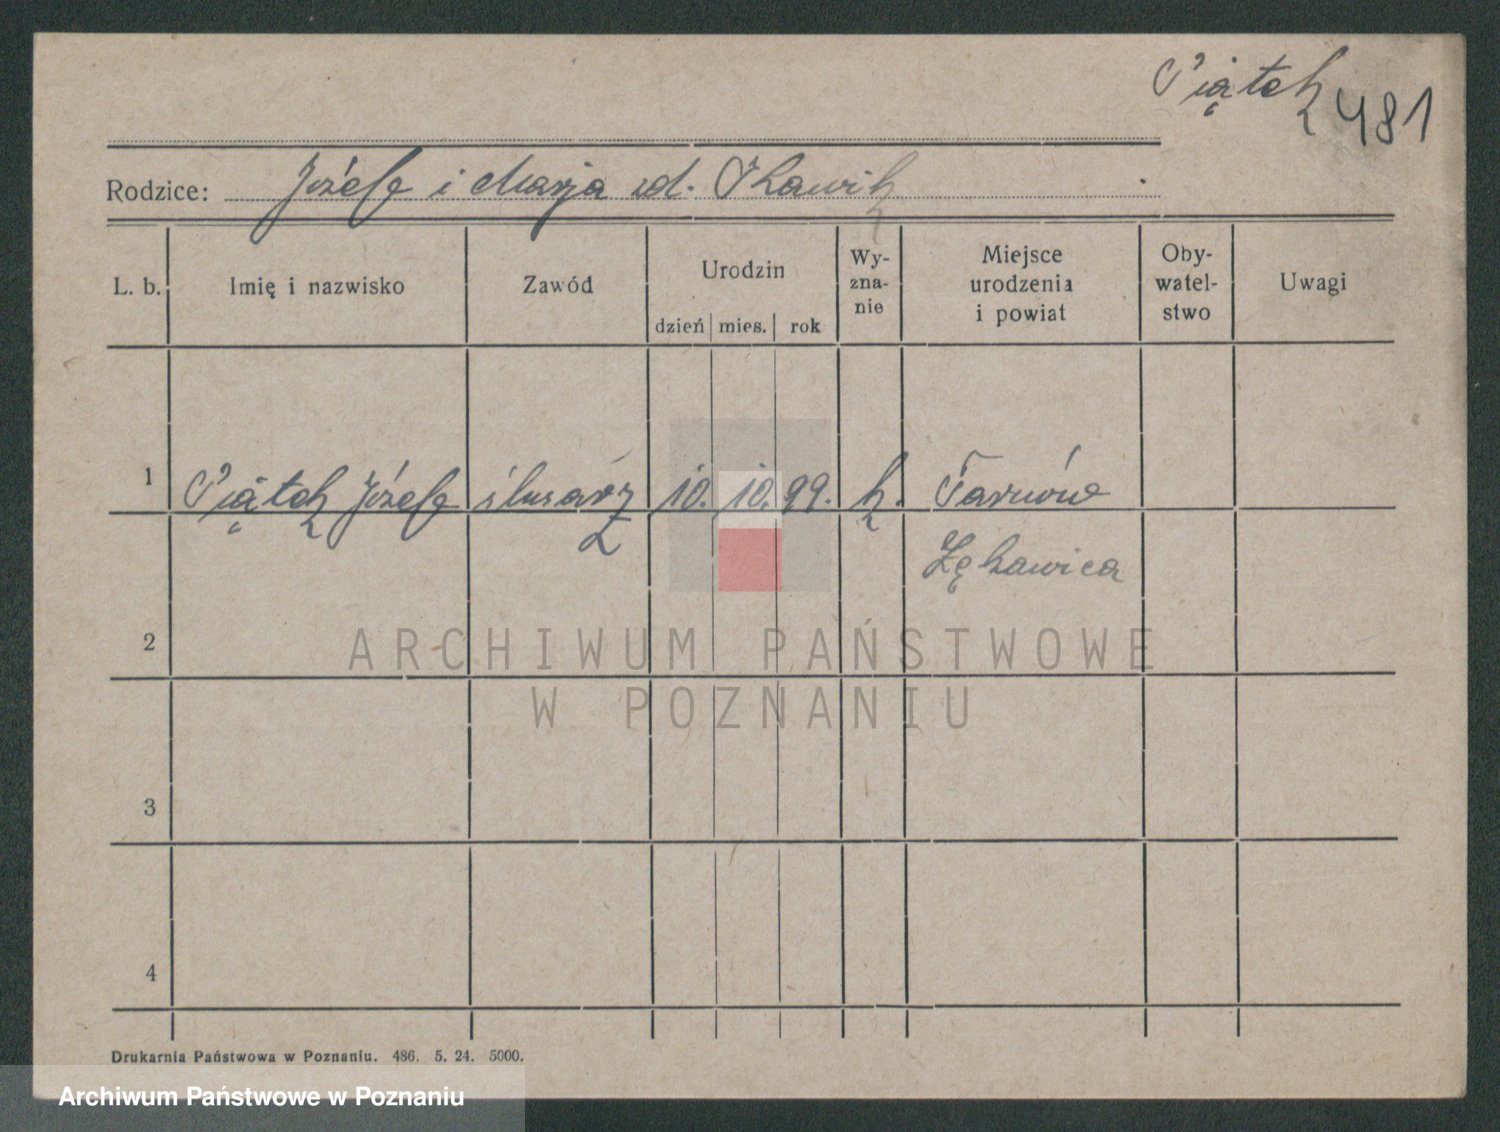 Piątek 481
Rodzice: Józef i Marja zd. Skawik
L. b. Imię i nazwisko Zawód Urodzin dzień mies. rok Wy-zna-nie Miejsce urodzenia i powiat Oby-watel-stwo Uwagi
1 Piątek Józef ślusarz 10. 10. 99. k. Tarnów
Łękawica
2
ARCHIWUM PAŃSTWOWE
W POZNANIU
3
4
Drukarnia Państwowa w Poznaniu. 486. 5. 24. 5000.
Archiwum Państwowe w Poznaniu